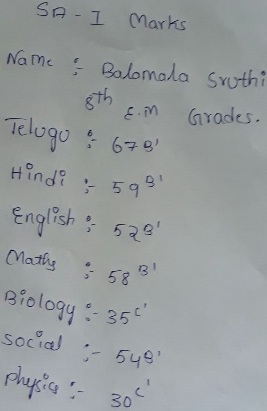 SA - I Marks
Name :- Balamala Sruthi
8th E.M Grades.
Telugu :- 67 B'
Hindi :- 59 B'
English :- 52 B'
Maths :- 58 B'
Biology :- 35 C'
Social :- 54 B'
Physics :- 30 C'